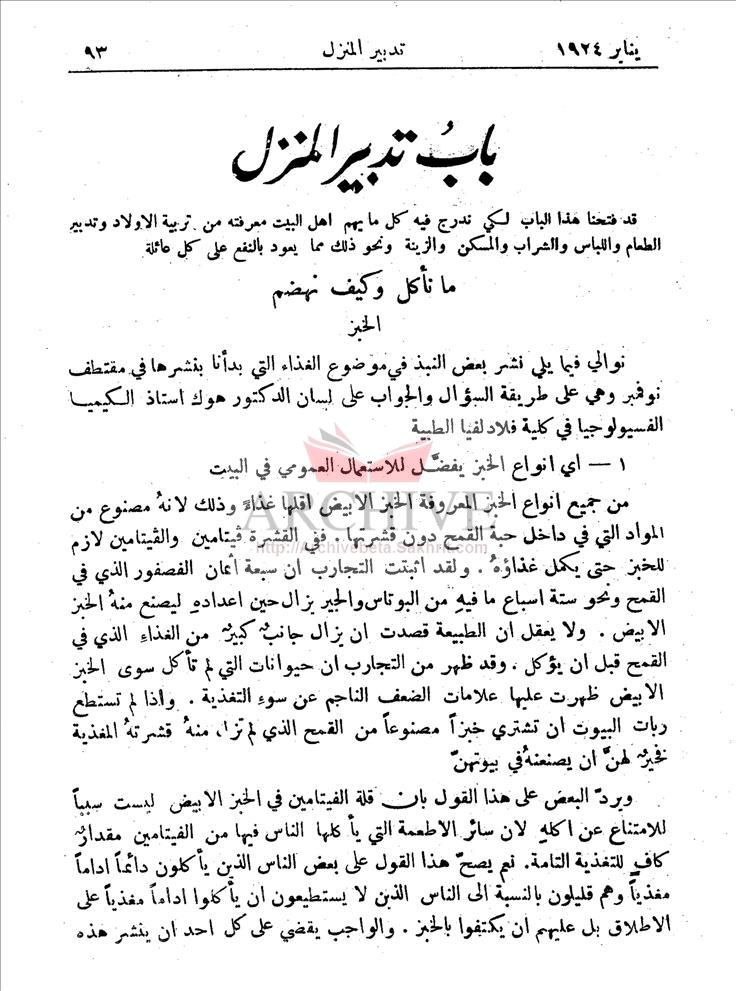 يناير ١٩٢٤ تدبير المنزل ٩٣
بابُ تدبير المنزل
قد فتحنا هذا الباب لكي ندرج فيه كل ما يهم اهل البيت معرفته من تربية الاولاد وتدبير
الطعام واللباس والشراب والمسكن والزينة ونحو ذلك مما يعود بالنفع على كل عائلة
ما نأكل وكيف نهضم
الخبز
نوالي فيما يلي نشر بعض النبذ في موضوع الغذاء التي بدأنا بنشرها في مقتطف
نوفمبر وهي على طريقة السؤال والجواب على لسان الدكتور هوك استاذ الكيميا
الفسيولوجيا في كلية فلادلفيا الطبية
١ — اي انواع الخبز يفضَّل للاستعمال العمومي في البيت
ARCHIVE
من جميع انواع الخبز المعروفة الخبز الابيض اقلها غذاءً وذلك لانهُ مصنوع من
المواد التي في داخل حبة القمح دون قشرتها . ففي القشرة ڤيتامين والڤيتامين لازم
http://Archivebeta.Sakhrit.com
للخبز حتى يكمل غذاؤهُ . ولقد اثبتت التجارب ان سبعة اثمان الفصفور الذي في
القمح ونحو ستة اسباع ما فيهِ من البوتاس والجير يزال حين اعدادهِ ليصنع منهُ الخبز
الابيض . ولا يعقل ان الطبيعة قصدت ان يزال جانبٌ كبيرٌ من الغذاء الذي في
القمح قبل ان يؤكل . وقد ظهر من التجارب ان حيوانات التي لم تأكل سوى الخبز
الابيض ظهرت عليها علامات الضعف الناجم عن سوء التغذية . واذا لم تستطع
ربات البيوت ان تشتري خبزاً مصنوعاً من القمح الذي لم تزل منهُ قشرتهُ المغذية
فخيرٌ لهنَّ ان يصنعنهُ في بيوتهنّ
ويردّ البعض على هذا القول بان قلة الفيتامين في الخبز الابيض ليست سبباً
للامتناع عن اكلهِ لان سائر الاطعمة التي يأكلها الناس فيها من الفيتامين مقدارٌ
كافٍ للتغذية التامة. نعم يصحّ هذا القول على بعض الناس الذين يأكلون دائماً اداماً
مغذياً وهم قليلون بالنسبة الى الناس الذين لا يستطيعون ان يأكلوا اداماً مغذياً على
الاطلاق بل عليهم ان يكتفوا بالخبز . والواجب يقضي على كل احد ان ينشر هذه